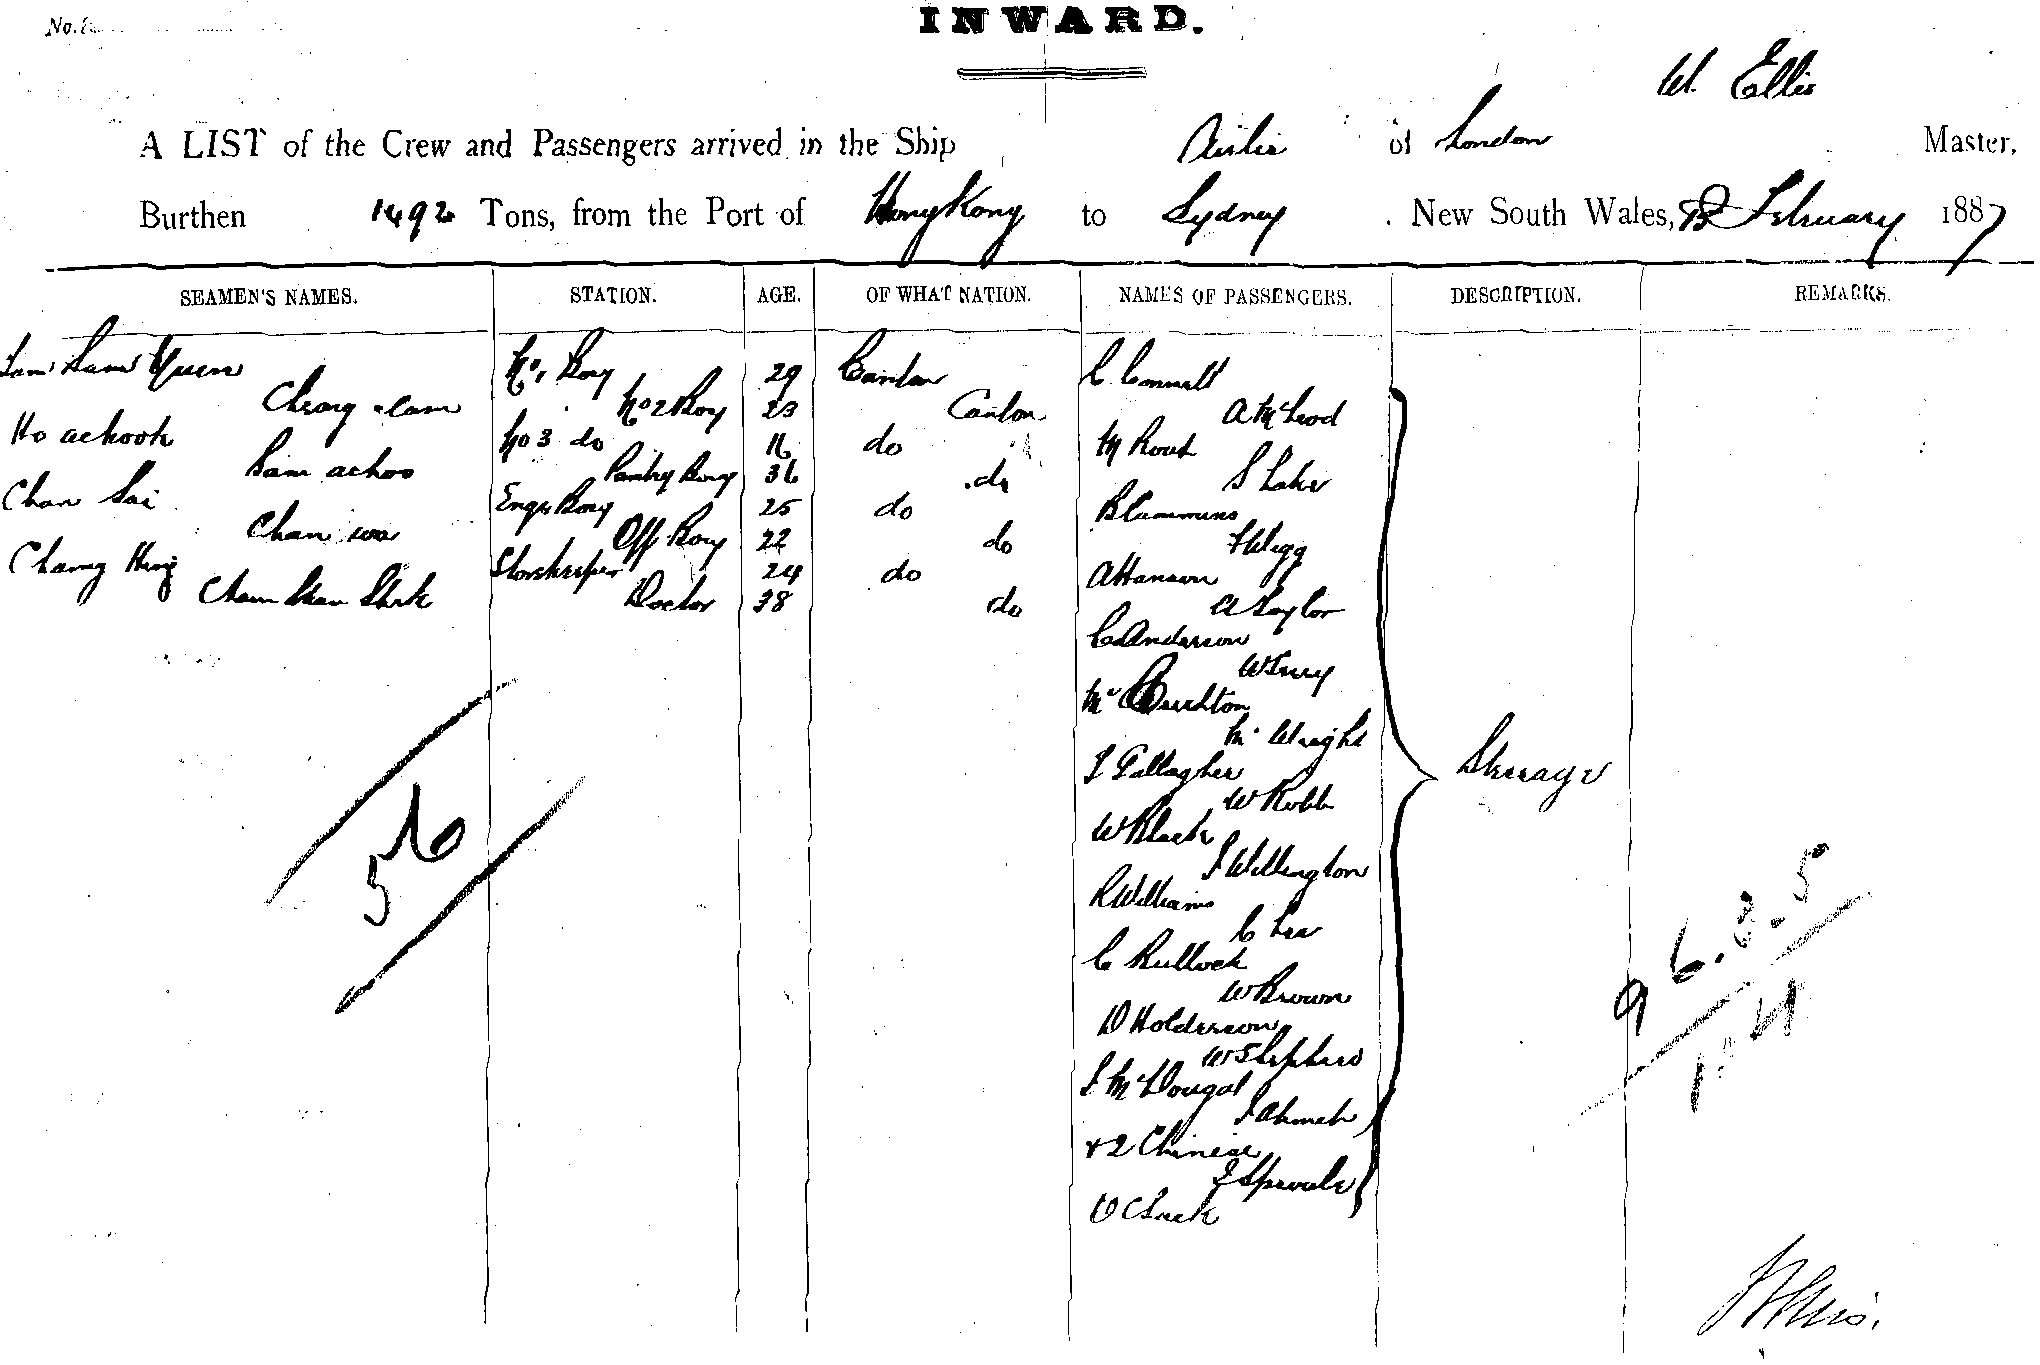 INWARD.
W. Ellis
A LIST of the Crew and Passengers arrived in the Ship Airlie of London Master,
Burthen 1492 Tons, from the Port of Hong Kong to Sydney. New South Wales, February 1887
SEAMEN'S NAMES. STATION. AGE. OF WHAT NATION. NAMES OF PASSENGERS. DESCRIPTION. REMARKS.
Yuen No 1 Boy 29 Canton C Connell
Cheong No 2 Boy 23 Canton A McLeod
Ho achook No 3 do 16 do M Rout
achoo Pantry Boy 36 do S Lake
Chan Sai Engrs Boy 25 do B Cummins
Chan wa Off Boy 22 do
Storekeeper 24 do A Hanson
Chan Doctor 38 do A Taylor
C Anderson
W
Mc
Mc Wright
J Gallagher
Steerage
W Robb
W Black
J Wellington
R Williams
C Lee
C Bullock
W Brown
D Holderson
W Shepherd
J McDougal
+ 2 Chinese
J Sproule
56
6.
9
W Ellis.